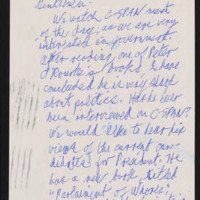 Gentlemen:
We watch C-SPAN most
of the day, as we are very
interested in government.
After reading one of Peter
O'Rourke's books, I have
concluded he is very sharp
about politics. Has he ever
been interviewed on C-SPAN?
We would like to hear his
views of the current can-
didates for President. He
has a new book titled
"Parliament of Whores"